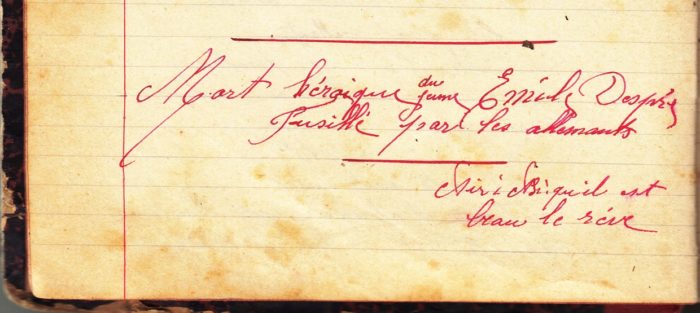 Mort héroique du jeune Emile Després
Fusillé par les allemands
qu'il est
beau le rêve